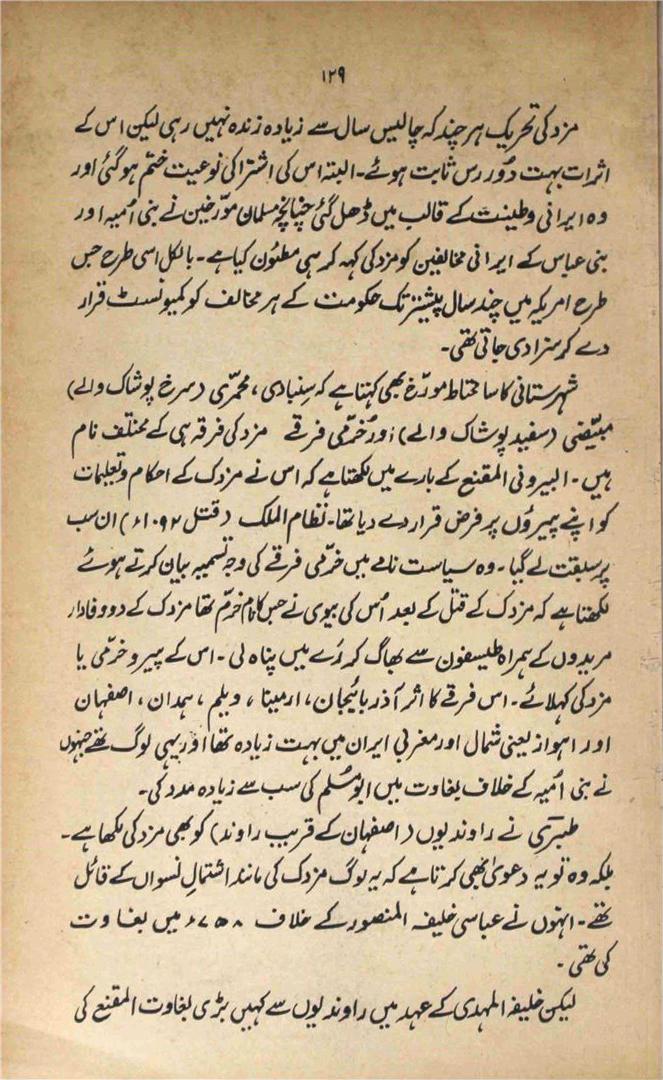 ۱۲۹
مزدکی تحریک ہر چند کہ چالیس سال سے زیادہ زندہ نہیں رہی لیکن اس کے
اثرات بہت دُور رس ثابت ہوئے۔ البتہ اس کی اشتراکی نوعیت ختم ہو گئی اور
وہ ایرانی وطینت کے قالب میں ڈھل گئی چنانچہ مسلمان مورّخین نے بنی اُمیہ اور
بنی عباس کے ایرانی مخالفین کو مزدکی کہہ کر ہی مطعُون کیا ہے۔ بالکل اسی طرح جس
طرح امریکہ میں چند سال پیشتر تک حکومت کے ہر مخالف کو کمیونسٹ قرار
دے کر سزا دی جاتی تھی۔
شہرستانی کا سا محتاط مورّخ بھی کہتا ہے کہ سِنبادی، محمّری (سرخ پوشاک والے)
مبیّضی (سفید پوشاک والے) اور خُرّمی فرقے مزدکی فرقہ ہی کے مختلف نام
ہیں۔ البیرونی المقنع کے بارے میں لکھتا ہے کہ اس نے مزدک کے احکام و تعلیمات
کو اپنے پیروُں پر فرض قرار دے دیا تھا۔ نظام الملک (قتل ۱۰۹۲ء) ان سب
پر سبقت لے گیا۔ وہ سیاست نامے میں خرّمی فرقے کی وجہ تسمیہ بیان کرتے ہوئے
لکھتا ہے کہ مزدک کے قتل کے بعد اُس کی بیوی نے جس کا نام خرّم تھا مزدک کے دو وفادار
مریدوں کے ہمراہ طیسفون سے بھاگ کر رَے میں پناہ لی۔ اس کے پیرو خرّمی یا
مزدکی کہلائے۔ اس فرقے کا اثر آذربائیجان، ارمینا، ویلم، ہمدان، اصفہان
اور اہواز یعنی شمال اور مغربی ایران میں بہت زیادہ تھا اور یہی لوگ تھے جنہوں
نے بنی اُمیہ کے خلاف بغاوت میں ابو مُسلم کی سب سے زیادہ مدد کی۔
طبرَی نے راوندیوں (اصفہان کے قریب راوند) کو بھی مزدکی لکھا ہے۔
بلکہ وہ تو یہ دعویٰ بھی کرتا ہے کہ یہ لوگ مزدک کی مانند اشتمالِ نسواں کے قائل
تھے۔ انہوں نے عباسی خلیفہ المنصور کے خلاف ۷۵۸ء میں بغاوت
کی تھی۔
لیکن خلیفہ المہدی کے عہد میں راوندیوں سے کہیں بڑی بغاوت المقنع کی